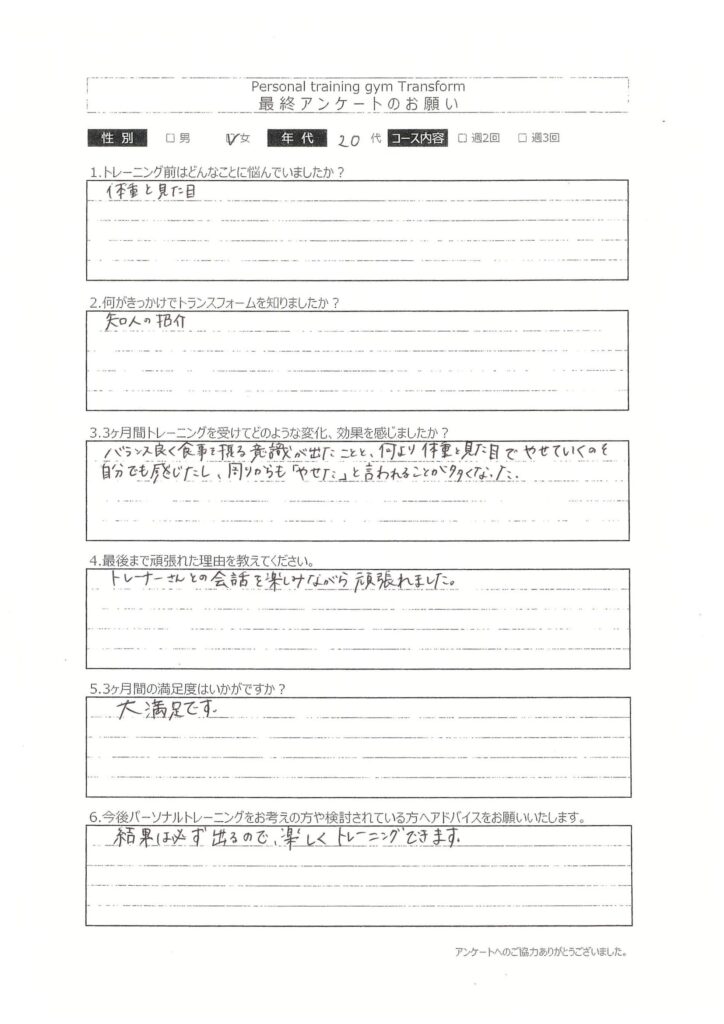 Personal training gym Transform
最終アンケートのお願い
性別 □男 ☑女 年代 20代 コース内容 □週2回 □週3回
1.トレーニング前はどんなことに悩んでいましたか？
体重と見た目
2.何がきっかけでトランスフォームを知りましたか？
知人の招介
3.3ヶ月間トレーニングを受けてどのような変化、効果を感じましたか？
バランス良く食事を摂る意識が出たことと、何より体重と見た目でやせていくのを
自分でも感じたし、周りからも「やせた」と言われることが多くなった.
4.最後まで頑張れた理由を教えてください。
トレーナーさんとの会話を楽しみながら頑張れました。
5.3ヶ月間の満足度はいかがですか？
大満足です.
6.今後パーソナルトレーニングをお考えの方や検討されている方へアドバイスをお願いいたします。
結果は必ず出るので、楽しくトレーニングできます.
アンケートへのご協力ありがとうございました。